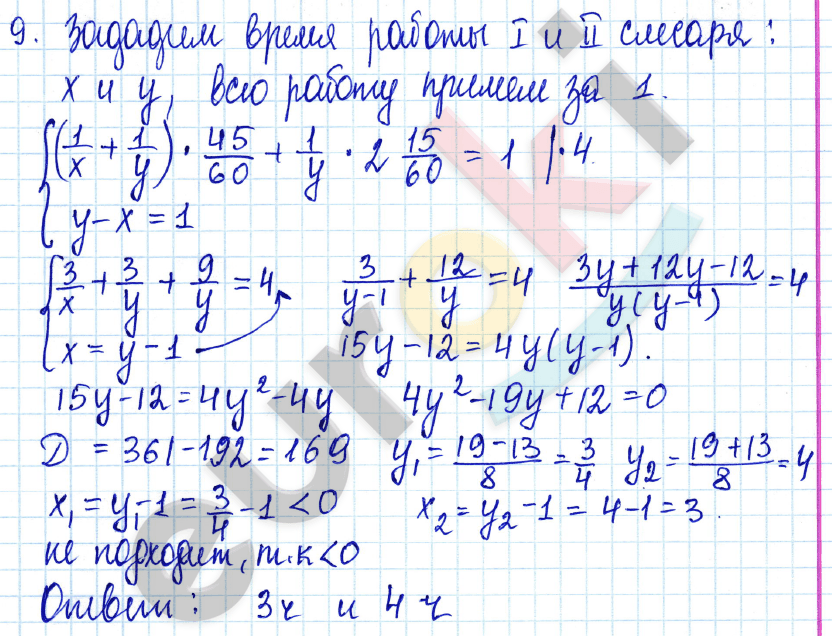 9. Зададим время работы I и II слесаря:
x и y, всю работу примем за 1.
{(1/x + 1/y) · 45/60 + 1/y · 2 15/60 = 1 |·4
{y - x = 1
{3/x + 3/y + 9/y = 4 3/(y-1) + 12/y = 4 (3y + 12y - 12)/(y(y-1)) = 4
{x = y - 1 15y - 12 = 4y(y-1).
15y - 12 = 4y² - 4y 4y² - 19y + 12 = 0
D = 361 - 192 = 169 y₁ = (19 - 13)/8 = 3/4 y₂ = (19 + 13)/8 = 4
x₁ = y₁ - 1 = 3/4 - 1 < 0 x₂ = y₂ - 1 = 4 - 1 = 3.
не подходит, т.к < 0
Ответ: 3ч и 4ч
euroki